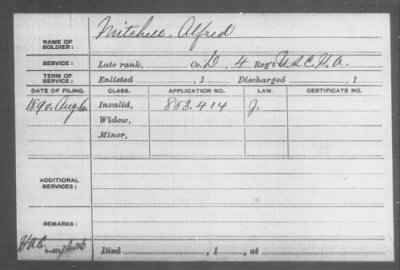 NAME OF SOLDIER: Mitchell, Alfred
SERVICE: Late rank, Co. D, 4 Reg't U.S.C.H.A.
TERM OF SERVICE: Enlisted , 1 Discharged , 1
DATE OF FILING. CLASS. APPLICATION NO. LAW. CERTIFICATE NO.
1890, Aug 6 Invalid, 853.414 J.
Widow,
Minor,
ADDITIONAL SERVICES:
REMARKS:
Died , 1 , at